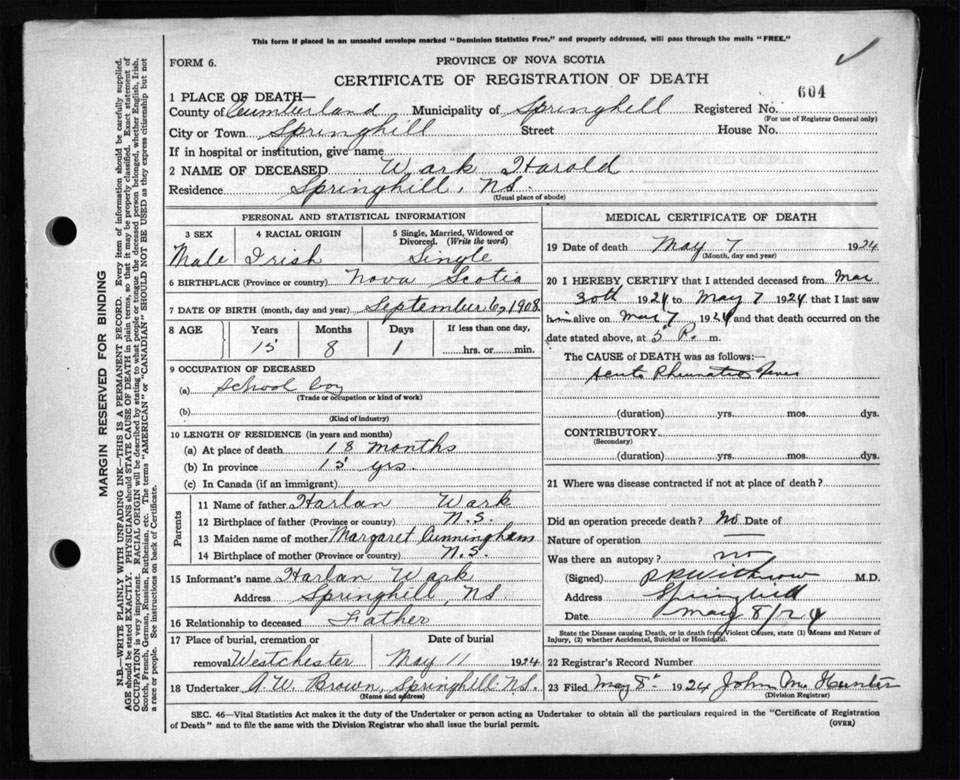 This form if placed in an unsealed envelope marked "Dominion Statistics Free," and properly addressed, will pass through the mails "FREE."
FORM 6.
PROVINCE OF NOVA SCOTIA
CERTIFICATE OF REGISTRATION OF DEATH
604
1 PLACE OF DEATH—
County of Cumberland Municipality of Springhill Registered No.
(For use of Registrar General only)
City or Town Springhill Street House No.
If in hospital or institution, give name
2 NAME OF DECEASED Wark Harold
Residence Springhill, N.S.
(Usual place of abode)
PERSONAL AND STATISTICAL INFORMATION
3 SEX 4 RACIAL ORIGIN 5 Single, Married, Widowed or Divorced. (Write the word)
Male Irish Single
6 BIRTHPLACE (Province or country) Nova Scotia
7 DATE OF BIRTH (month, day and year) September 6, 1908
8 AGE Years Months Days If less than one day,
15 8 1 hrs. or min.
9 OCCUPATION OF DECEASED
(a) School boy
(Trade or occupation or kind of work)
(b)
(Kind of industry)
10 LENGTH OF RESIDENCE (in years and months)
(a) At place of death 18 months
(b) In province 15 yrs.
(c) In Canada (if an immigrant)
Parents
11 Name of father Harlan Wark
12 Birthplace of father (Province or country) N.S.
13 Maiden name of mother Margaret Cunningham
14 Birthplace of mother (Province or country) N.S.
15 Informant's name Harlan Wark
Address Springhill, N.S.
16 Relationship to deceased Father
17 Place of burial, cremation or Date of burial
removal Westchester May 11 1924
18 Undertaker A.W. Brown, Springhill N.S.
(Name and address)
MEDICAL CERTIFICATE OF DEATH
19 Date of death May 7 1924
(Month, day and year)
20 I HEREBY CERTIFY that I attended deceased from Mar
30th 1924 to May 7 1924 that I last saw
him alive on May 7 1924 and that death occurred on the
date stated above, at 5 P. m.
The CAUSE OF DEATH was as follows:—
Acute Rheumatic Fever
(duration) yrs. mos. dys.
CONTRIBUTORY
(Secondary)
(duration) yrs. mos. dys.
21 Where was disease contracted if not at place of death?
Did an operation precede death? No Date of
Nature of operation —
Was there an autopsy? no
(Signed) Withrow M.D.
Address Springhill
Date May 8/24
State the Disease causing Death, or in death from Violent Causes, state (1) Means and Nature of
Injury, (2) whether Accidental, Suicidal or Homicidal.
22 Registrar's Record Number
23 Filed May 8th 1924 John M. Hunter
(Division Registrar)
SEC. 46—Vital Statistics Act makes it the duty of the Undertaker or person acting as Undertaker to obtain all the particulars required in the "Certificate of Registration
of Death" and to file the same with the Division Registrar who shall issue the burial permit.
(OVER)
MARGIN RESERVED FOR BINDING
N.B.—WRITE PLAINLY WITH UNFADING INK—THIS IS A PERMANENT RECORD. Every item of information should be carefully supplied.
AGE should be stated EXACTLY. PHYSICIANS should STATE CAUSE OF DEATH in plain terms, so that it may be properly classified. Exact statement of
OCCUPATION is very important. RACIAL ORIGIN will be described by stating to what people or tongue the deceased person belonged, whether English, Irish,
Scotch, French, German, Russian, Ruthenian, etc. The terms "AMERICAN" or "CANADIAN" SHOULD NOT BE USED as they express citizenship but not
a race or people. See instructions on back of Certificate.